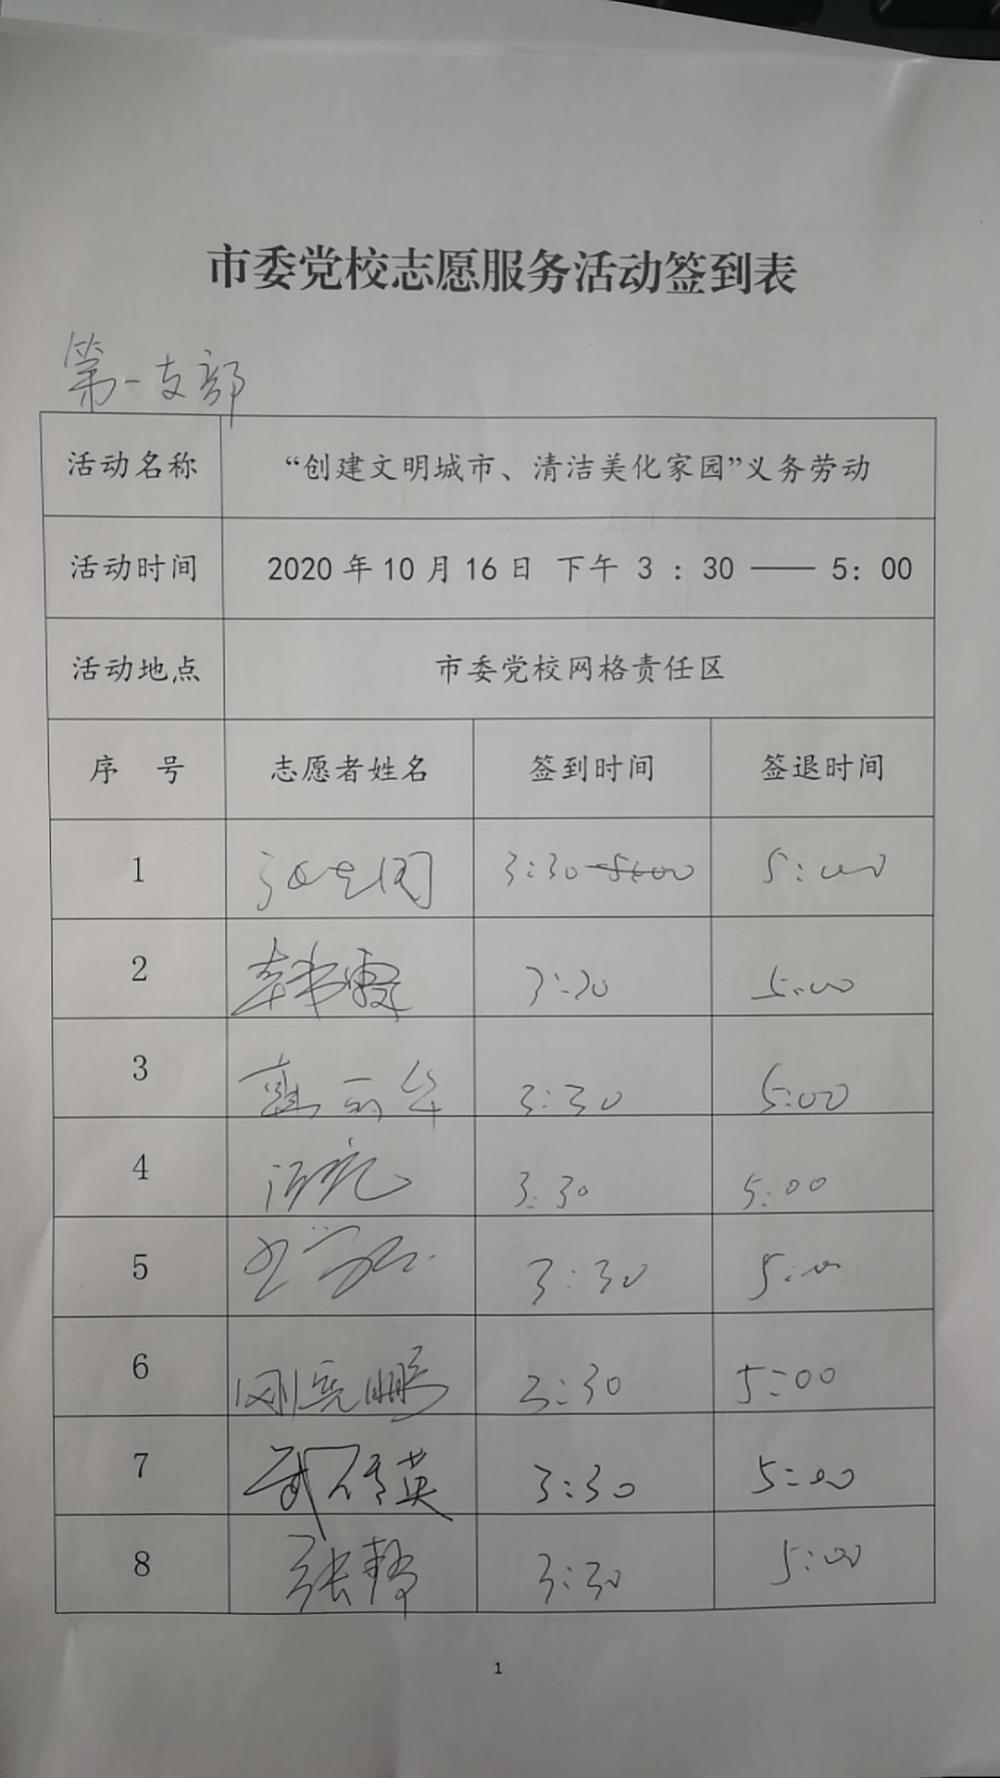 市委党校志愿服务活动签到表
第一支部
活动名称 “创建文明城市、清洁美化家园”义务劳动
活动时间 2020 年 10 月 16 日 下午 3 : 30 —— 5: 00
活动地点 市委党校网格责任区
序 号 志愿者姓名 签到时间 签退时间
1 3:30 5:00 5:00
2 韩霞 3:30 5:00
3 丽华 3:30 5:00
4 3:30 5:00
5 3:30 5:00
6 刚亮鹏 3:30 5:00
7 武倩英 3:30 5:00
8 张静 3:30 5:00
1